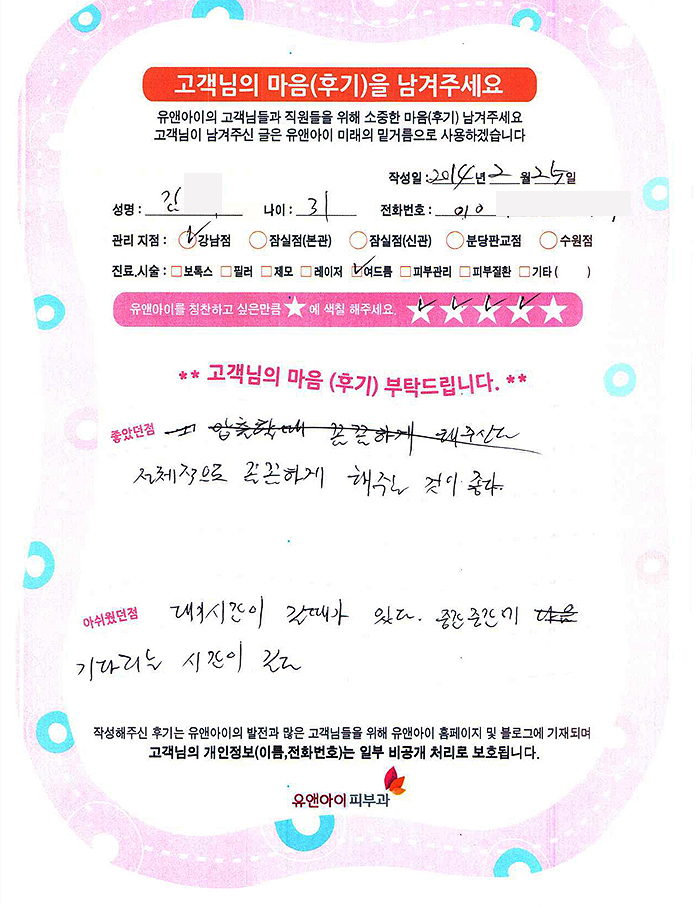 고객님의 마음(후기)을 남겨주세요
유앤아이의 고객님들과 직원들을 위해 소중한 마음(후기) 남겨주세요
고객님이 남겨주신 글은 유앤아이 미래의 밑거름으로 사용하겠습니다
작성일 : 2014년 2월 25일
성명 : 김 나이 : 31 전화번호 : 010
관리 지점 : 강남점 잠실점(본관) 잠실점(신관) 분당판교점 수원점
진료,시술 : 보톡스 필러 제모 레이저 여드름 피부관리 피부질환 기타 ( )
유앤아이를 칭찬하고 싶은만큼 ★ 에 색칠 해주세요. ★★★★★
** 고객님의 마음 (후기) 부탁드립니다. **
좋았던점 압출할때 꼼꼼하게 해주신다
전체적으로 꼼꼼하게 해주는 것이 좋다.
아쉬웠던점 대기시간이 길때가 있다. 중간중간에 다음
기다리는 시간이 길다
작성해주신 후기는 유앤아이의 발전과 많은 고객님들을 위해 유앤아이 홈페이지 및 블로그에 기재되며
고객님의 개인정보(이름,전화번호)는 일부 비공개 처리로 보호됩니다.
유앤아이피부과